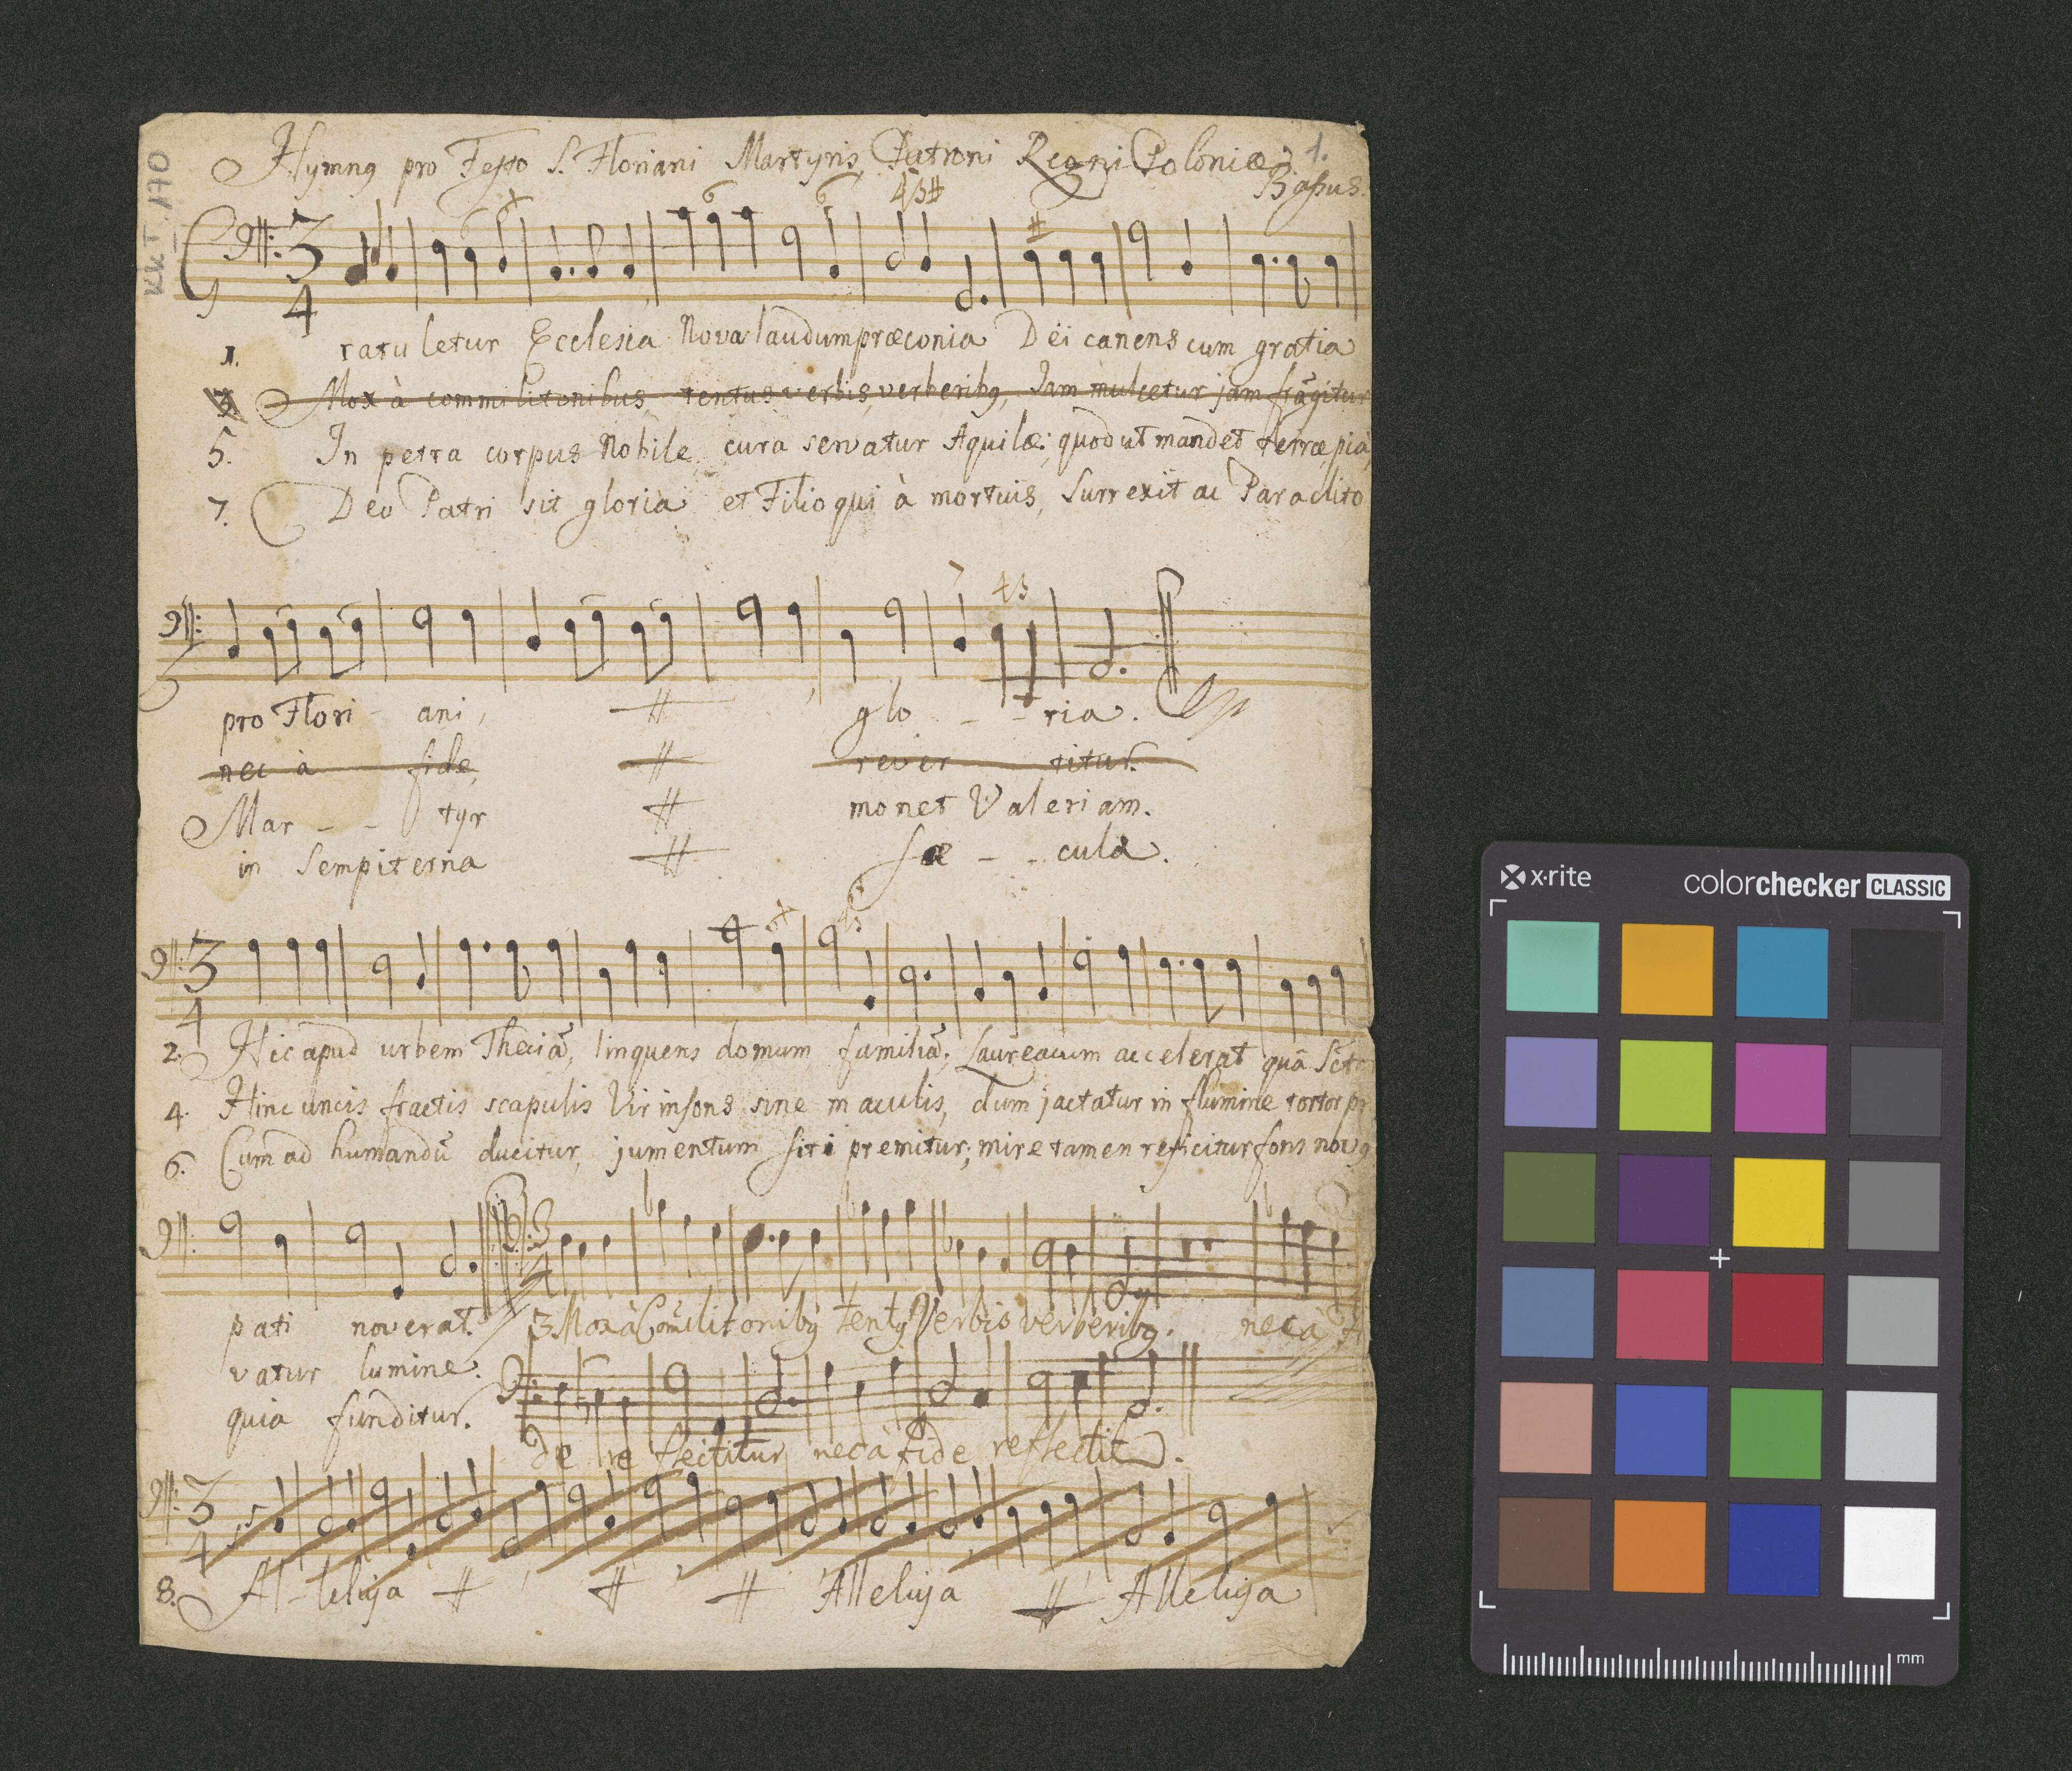 Hymnꝰ pro Festo S. Floriani Martyris, Patroni Regni Poloniæ. 1.
Bassus.
KkT. 170
6 6 6 4 3 #
#
3 4
G
1. ratuletur Ecclesia Nova laudum præconia Dei canens cum gratia
3 Mox à commilitonibus tentus verbis, verberibꝰ, Jam mulcetur jam frāgitur
5. In petra corpus Nobile, cura servatur Aquilæ; quod ut mandet terræ, pia,
7. Deo Patri sit gloria et Filio qui à mortuis, Surrexit ac Paraclito
7 4 3
pro Flori - ani, # glo - - ria.
nec à fide, # rever titur.
Mar - - tyr # monet Valeriam.
in Sempiterna # sæ - - cula.
3 4
2. Hic apud urbem Theciā, linquens domum familiā; Laureacum accelerat quā Scto
4. Hinc uncis fractis scapulis Vir insons sine maculis, dum jactatur in flumine tortor pri
6. Cum ad humandū ducitur, jumentum siti premitur; mire tamen reficitur fons novꝰ
3 4
pati noverat. 3 Mox à Com̄ilitonibꝰ tentꝰ Verbis verberibꝰ. nec à fi
vatur lumine.
quia funditur.
de re flectitur nec à fide reflectit.
3 4
8. Al - leluja # # # Alleluja # Alleluja
x·rite
colorchecker CLASSIC
mm